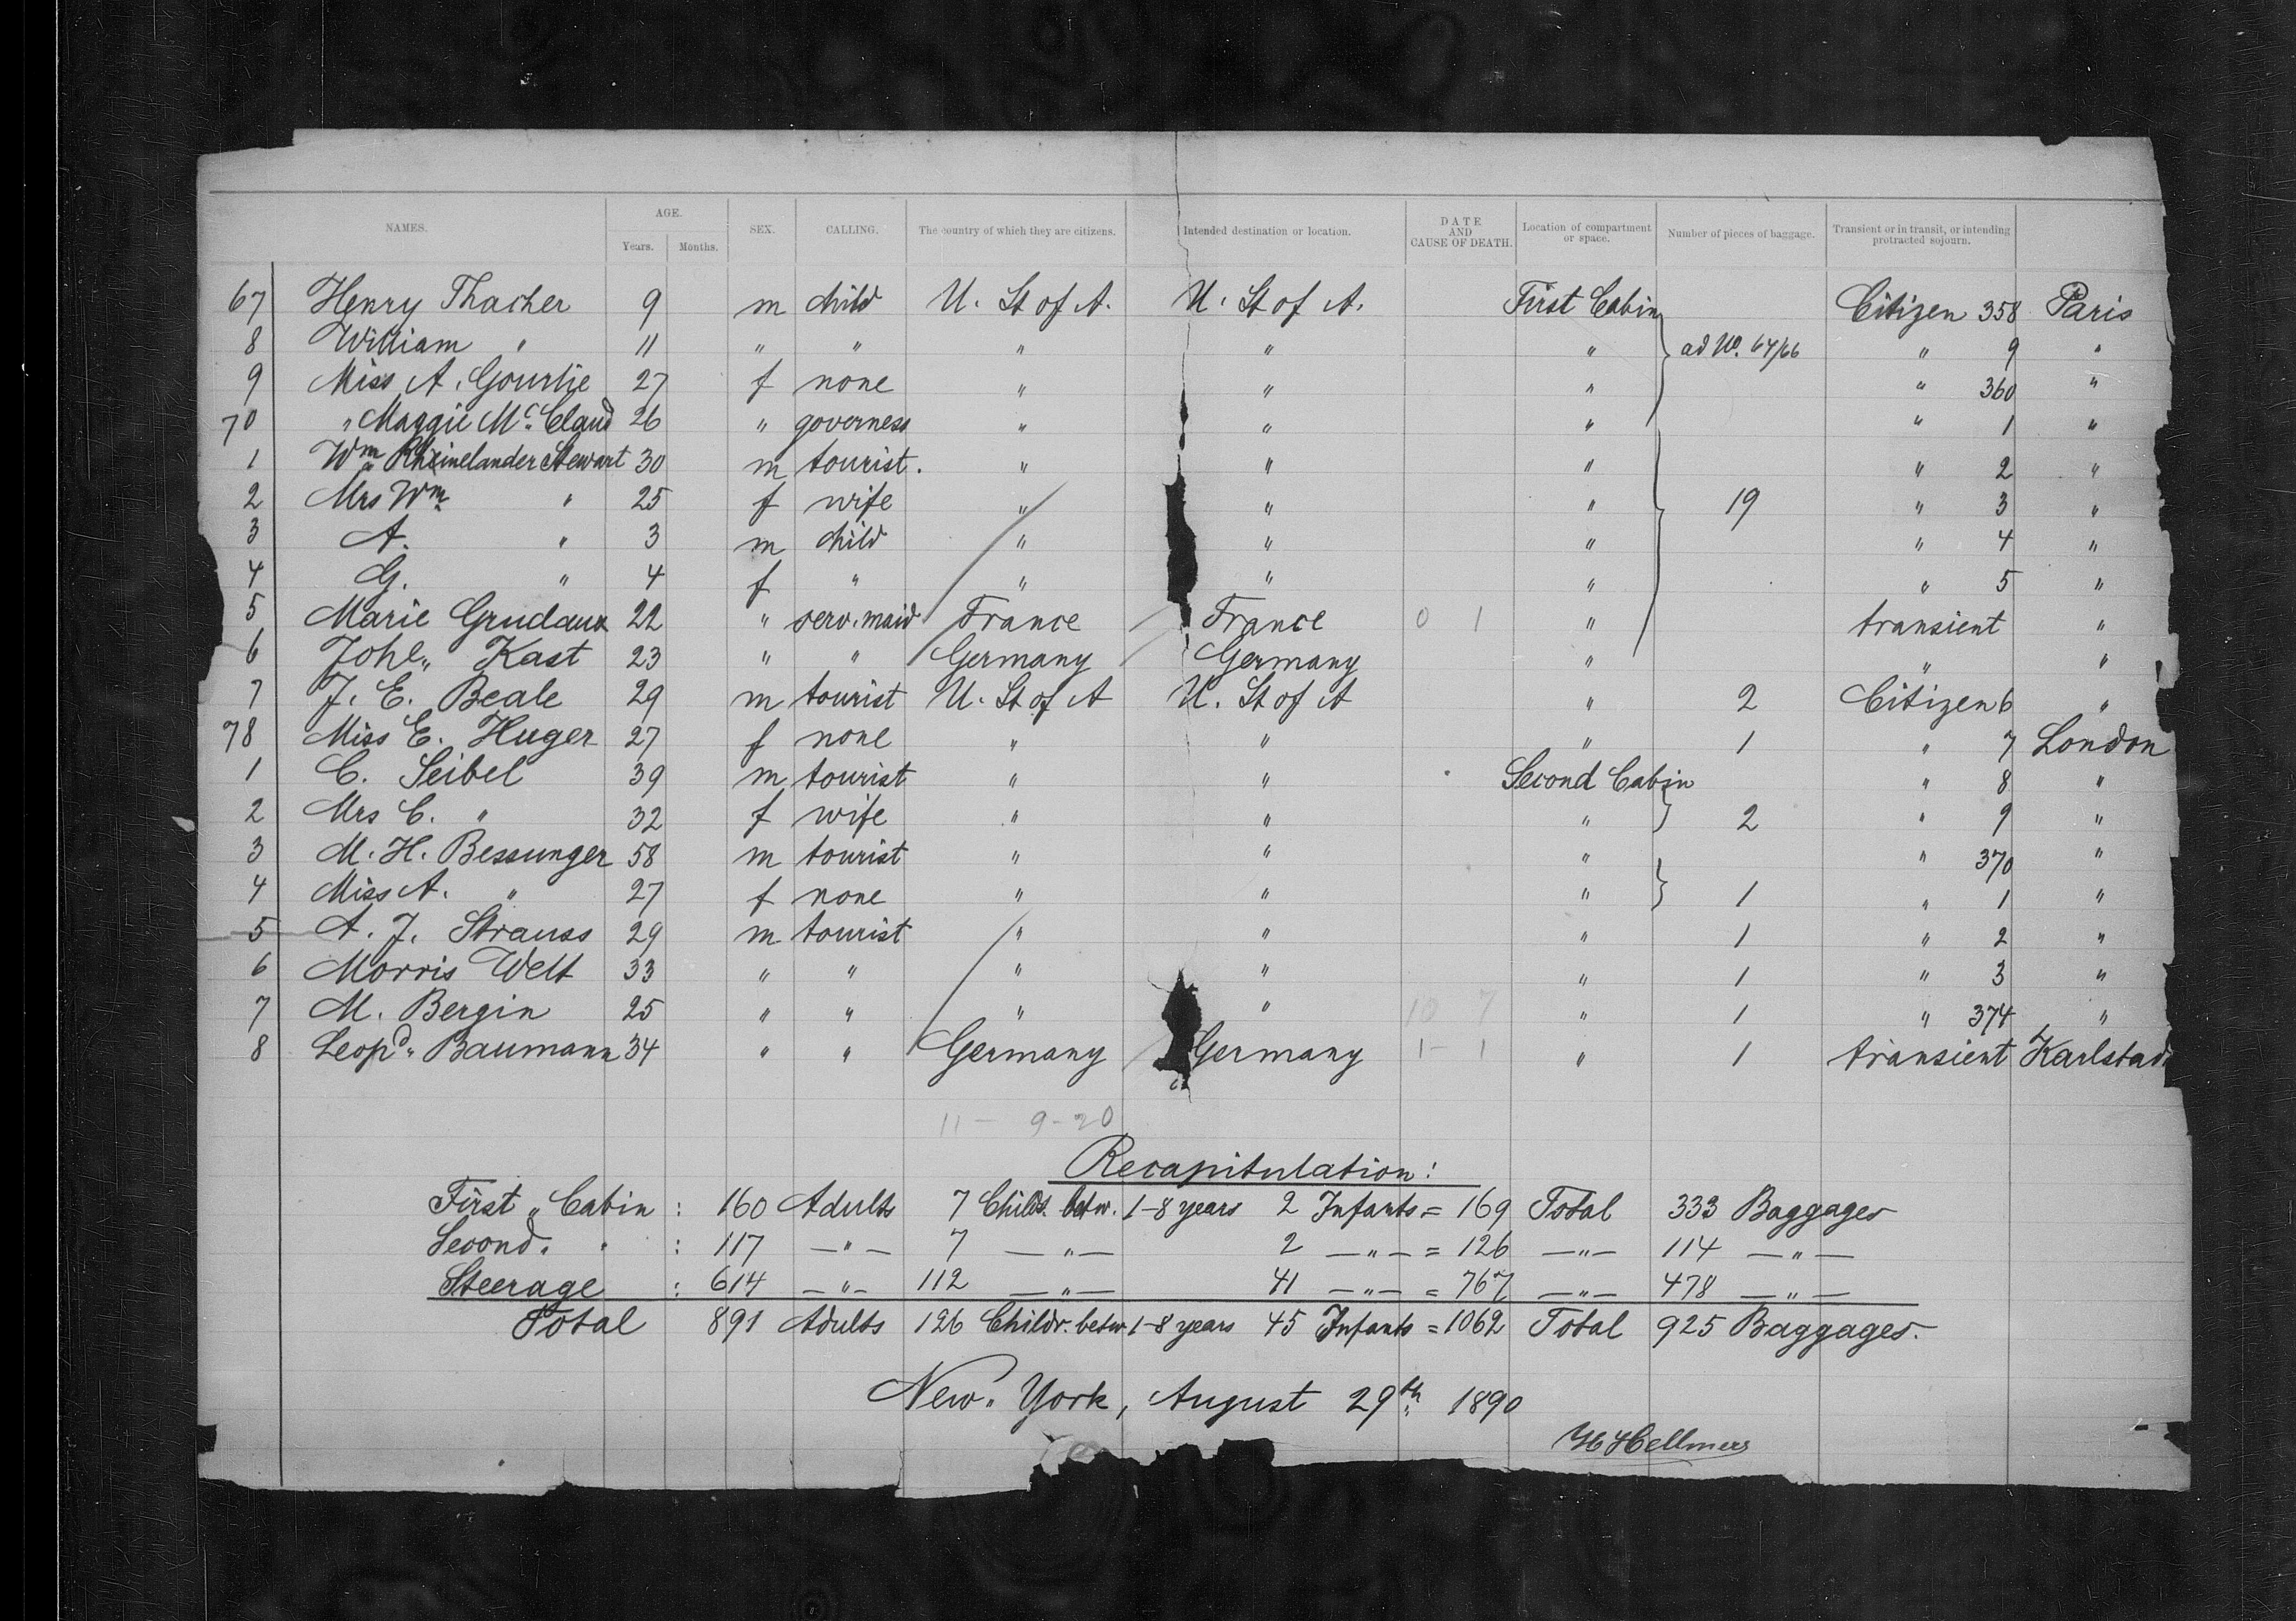 NAMES. AGE. Years. Months. SEX. CALLING. The country of which they are citizens. Intended destination or location. DATE AND CAUSE OF DEATH. Location of compartment or space. Number of pieces of baggage. Transient or in transit, or intending protracted sojourn.
67 Henry Thacher 9 m child U. St of A. U. St of A. First Cabin Citizen 358 Paris
8 William " 11 " " " " " ad No. 64/66 " 9 "
9 Miss A. Gourlie 27 f none " " " " 360 "
70 " Maggie Mc. Claud 26 " governess " " " " 1 "
1 Wm Rheinelander Stewart 30 m tourist. " " " " 2 "
2 Mrs Wm " 25 f wife " " " 19 " 3 "
3 A. " 3 m child " " " " 4 "
4 G. " 4 f " " " " " 5 "
5 Marie Grudaux 22 " serv. maid France France 0 1 " transient "
6 Johe„ Kast 23 " " Germany Germany " " "
7 J. E. Beale 29 m tourist U. St of A U. St of A " 2 Citizen 6 "
78 Miss E. Huger 27 f none " " " 1 " 7 London
1 C. Seibel 39 m tourist " " Second Cabin " 8 "
2 Mrs C. " 32 f wife " " " 2 " 9 "
3 M. H. Bessunger 58 m tourist " " " " 370 "
4 Miss A. " 27 f none " " " 1 " 1 "
5 A. J. Strauss 29 m tourist " " " 1 " 2 "
6 Morris Welt 33 " " " " " 1 " 3 "
7 M. Bergin 25 " " " " 10 7 " 1 " 374 "
8 Leopd„ Baumann 34 " " Germany Germany 1 - 1 " 1 transient Karlstad
11 - 9-20
Recapitulation:
First „ Cabin : 160 Adults 7 Childr. betw. 1-8 years 2 Infants = 169 Total 333 Baggages
Second „ " : 117 —"— 7 —"— 2 —"— = 126 —"— 114 —"—
Steerage : 614 —"— 112 —"— 41 —"— = 767 —"— 478 —"—
Total 891 Adults 126 Childr. betw 1-8 years 45 Infants = 1062 Total 925 Baggages.
New„ York, August 29th 1890
H Hellmers